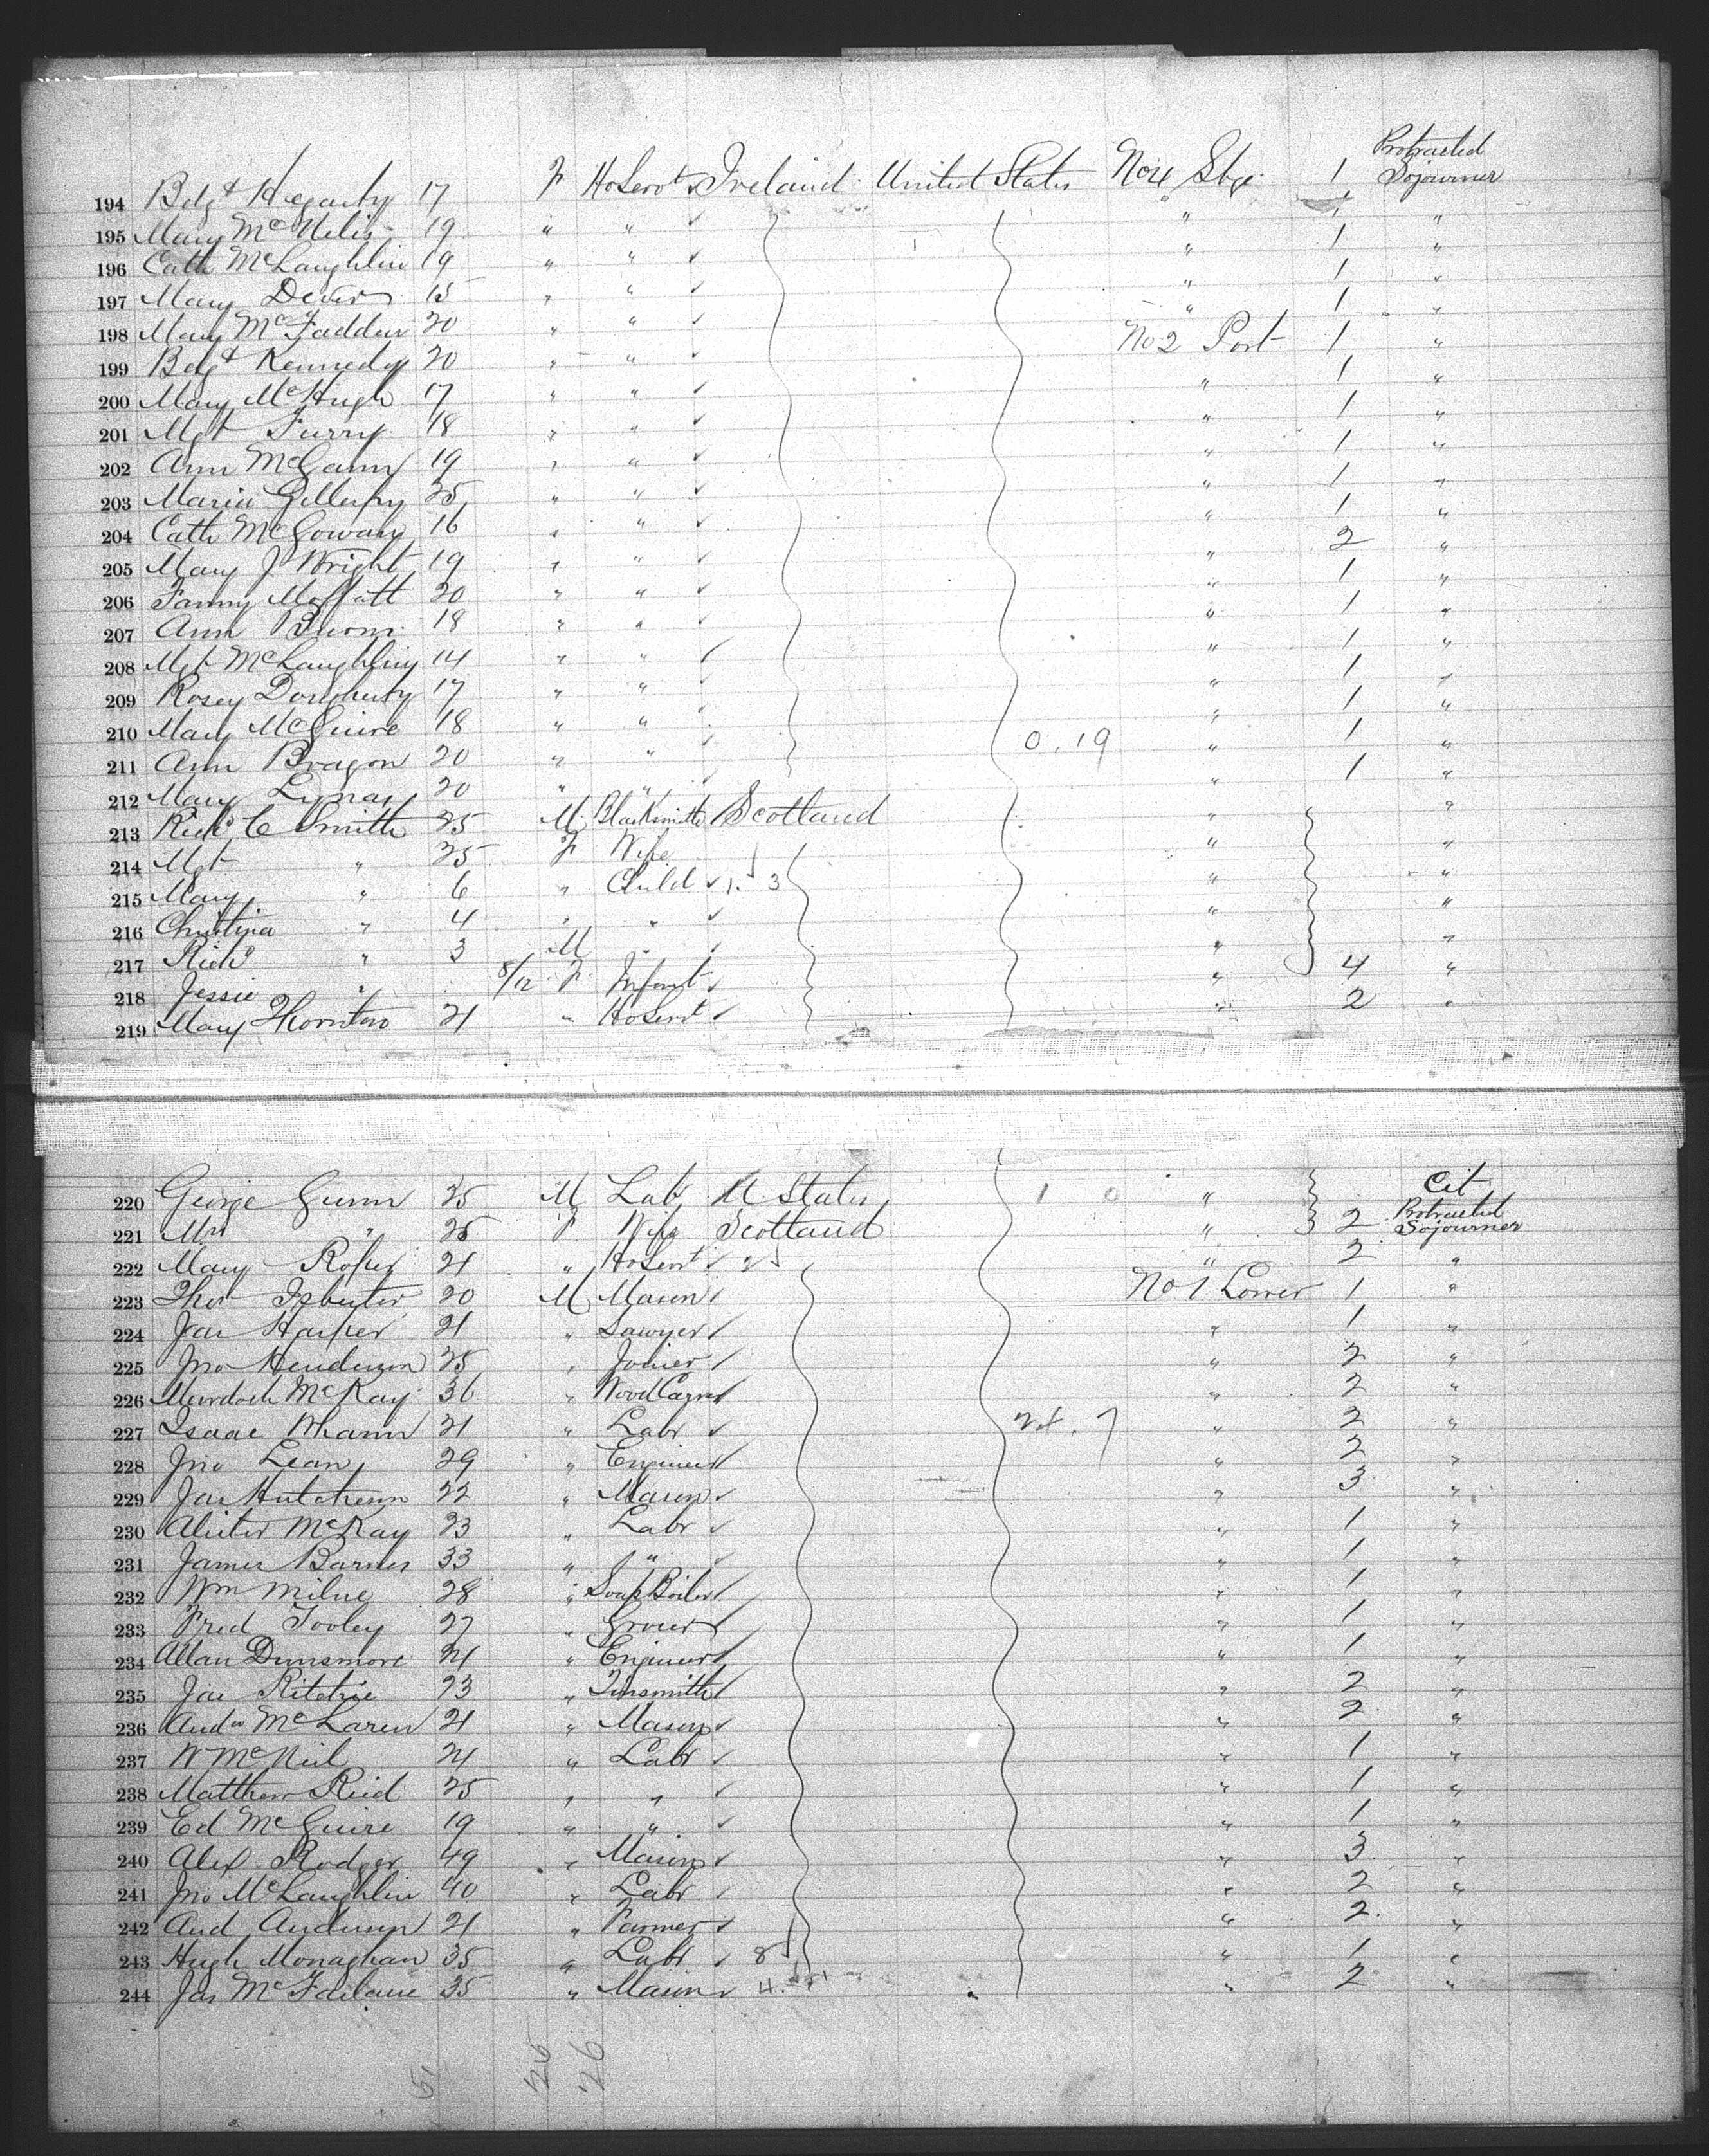 194 Bdgt Hegarty 17 F HoServt Ireland United States No 4 Stge 1 Protracted Sojourner
195 Mary McNelis 19 " " " 1 "
196 Cath McLaughlin 19 " " " 1 "
197 Mary Dever 15 " " " 1 "
198 Mary McFadden 20 " " " 1 "
199 Bdgt Kennedy 20 " " No 2 Port 1 "
200 Mary McHugh 17 " " " 1 "
201 Mgt Furry 18 " " " 1 "
202 Ann McGann 19 " " " 1 "
203 Maria 25 " " " 1 "
204 Cath McGowan 16 " " " 1 "
205 Mary J Wright 19 " " " 2 "
206 Fanny Moffatt 20 " " " 1 "
207 Ann 18 " " " 1 "
208 Mgt McLaughlin 14 " " " 1 "
209 Rosey Dougherty 17 " " " 1 "
210 Mary McGuire 18 " " " 1 "
211 Ann Bragon 20 " " 0.19 " 1 "
212 Mary Lynas 20 " " " 1 "
213 Richd C Smith 25 M Blacksmith Scotland " "
214 Mgt " 25 F Wife " "
215 Mary " 6 " Child 3 " "
216 Christina " 4 " " " "
217 Richd " 3 M " " "
218 Jessie " 8/12 F Infant " 4 "
219 Mary Thornton 21 " HoServt " 2 "
220 George Gunn 25 M Labr U States 1 0 " Cit
221 Mrs " 25 F Wife Scotland " 2 Protracted Sojourner
222 Mary Roper 21 " HoServt " 2 "
223 Thos Isbister 20 M Mason No 1 Lower 1 "
224 Jas Harper 21 " Sawyer " 1 "
225 Jno Henderson 25 " Joiner " 2 "
226 Murdoch McKay 36 " Wood Carver " 2 "
227 Isaac Mhann 21 " Labr " 2 "
228 Jno Lean 29 " Engineer " 2 "
229 Jas Hutcheson 22 " Mason " 3 "
230 McKay 23 " Labr " 1 "
231 James Barnes 33 " " " 1 "
232 Wm Milne 28 " Soap Boiler " 1 "
233 Fred Tooley 27 " Grocer " 1 "
234 Allan Dunsmore 21 " Engineer " 1 "
235 Jas Ritchie 23 " Tinsmith " 2 "
236 Andw McLaren 21 " Mason " 2 "
237 W McNeil 24 " Labr " 1 "
238 Matthew Reid 25 " " " 1 "
239 Ed McGuire 19 " " " 1 "
240 Alex Rodger 49 " Mason " 3 "
241 Jno McLaughlin 40 " Labr " 2 "
242 And Anderson 21 " Farmer " 2 "
243 Hugh Monaghan 35 " Labr 8 " 1 "
244 Jas McFarlane 35 " Mason 4 " 2 "
51 25 26